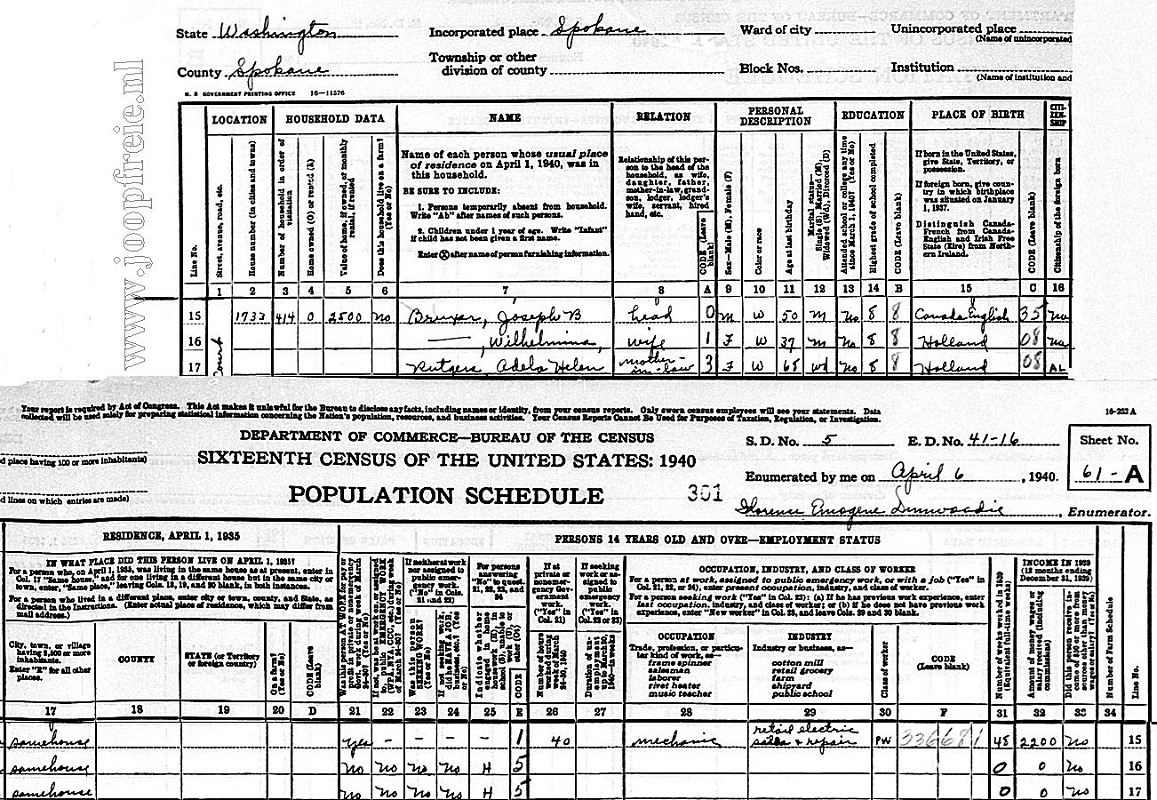 www.joopfreie.nl
State Washington Incorporated place Spokane Ward of city Unincorporated place
(Name of unincorporated
County Spokane Township or other division of county Block Nos. Institution
(Name of institution and
U. S GOVERNMENT PRINTING OFFICE 16—11576
LOCATION HOUSEHOLD DATA NAME RELATION PERSONAL DESCRIPTION EDUCATION PLACE OF BIRTH CITI-ZEN-SHIP
Line No.
Street, avenue, road, etc.
House number (in cities and towns)
Number of household in order of visitation
Home owned (O) or rented (R)
Value of home, if owned, or monthly rental, if rented
Does this household live on a farm? (Yes or No)
Name of each person whose usual place
of residence on April 1, 1940, was in
this household.
BE SURE TO INCLUDE:
1. Persons temporarily absent from household.
Write "Ab" after names of such persons.
2. Children under 1 year of age. Write "Infant"
if child has not been given a first name.
Enter Ⓧ after name of person furnishing information.
Relationship of this per-
son to the head of the
household, as wife,
daughter, father,
mother-in-law, grand-
son, lodger, lodger's
wife, servant, hired
hand, etc.
CODE (Leave blank)
Sex—Male (M), Female (F)
Color or race
Age at last birthday
Marital status—
Single (S), Married (M),
Widowed (Wd), Divorced (D)
Attended school or college any time since March 1, 1940? (Yes or No)
Highest grade of school completed
CODE (Leave blank)
If born in the United States,
give State, Territory, or
possession.
If foreign born, give coun-
try in which birthplace
was situated on January
1, 1937.
Distinguish Canada-
French from Canada-
English and Irish Free
State (Eire) from North-
ern Ireland.
CODE (Leave blank)
Citizenship of the foreign born
1 2 3 4 5 6 7 8 A 9 10 11 12 13 14 B 15 C 16
15 1733 414 O 2500 No Joseph B head 0 M W 50 M No 8 8 Canada English 35 na
16 ——, Wilhelmina, wife 1 F W 37 M No 8 8 Holland 08 na
17 Court Rutgers, Adela Helen mother-in-law 3 F W 68 wd No 8 8 Holland 08 AL
Your report is required by Act of Congress. This Act makes it unlawful for the Bureau to disclose any facts, including names or identity, from your census reports. Only sworn census employees will see your statements. Data
collected will be used solely for preparing statistical information concerning the Nation's population, resources, and business activities. Your Census Reports Cannot Be Used for Purposes of Taxation, Regulation, or Investigation.
16-252 A
DEPARTMENT OF COMMERCE—BUREAU OF THE CENSUS
SIXTEENTH CENSUS OF THE UNITED STATES: 1940
POPULATION SCHEDULE
301
d place having 100 or more inhabitants)
d lines on which entries are made)
S. D. No. 5 E. D. No. 41-16
Enumerated by me on April 6, 1940.
Florence Emogene, Enumerator.
Sheet No.
61-A
RESIDENCE, APRIL 1, 1935 PERSONS 14 YEARS OLD AND OVER—EMPLOYMENT STATUS
IN WHAT PLACE DID THIS PERSON LIVE ON APRIL 1, 1935?
For a person who, on April 1, 1935, was living in the same house as at present, enter in
Col. 17 "Same house," and for one living in a different house but in the same city or
town, enter, "Same place," leaving Cols. 18, 19, and 20 blank, in both instances.
For a person who lived in a different place, enter city or town, county, and State, as
directed in the Instructions. (Enter actual place of residence, which may differ from
mail address.)
City, town, or village
having 2,500 or more
inhabitants.
Enter "R" for all other
places.
COUNTY
STATE (or Territory
or foreign country)
On a farm? (Yes or No)
CODE (Leave blank)
If neither at work
nor assigned to
public emergency
work. ("No" in Cols.
21 and 22)
For persons
answering
"No" to quest.
21, 22, 23, and
24
CODE
If at
private or
nonemer-
gency Gov-
ernment
work.
("Yes" in
Col. 21)
Number of hours worked during week of March 24-30, 1940
If seeking
work or as-
signed to
public
emergency
work.
("Yes" in
Col. 22 or 23)
OCCUPATION, INDUSTRY, AND CLASS OF WORKER
For a person at work, assigned to public emergency work, or with a job ("Yes" in
Col. 21, 22, or 24), enter present occupation, industry, and class of worker.
For a person seeking work ("Yes" in Col. 23): (a) If he has previous work experience, enter
last occupation, industry, and class of worker; or (b) if he does not have previous work
experience, enter "New worker" in Col. 28, and leave Cols. 29 and 30 blank.
OCCUPATION
Trade, profession, or particu-
lar kind of work, as—
frame spinner
salesman
laborer
rivet heater
music teacher
INDUSTRY
Industry or business, as—
cotton mill
retail grocery
farm
shipyard
public school
Class of worker
CODE
(Leave blank)
INCOME IN 1939
(12 months ending
December 31, 1939)
Number of weeks worked in 1939 (Equivalent full-time weeks)
Amount of money wages or salary received (including commissions)
Number of Farm Schedule
Line No.
17 18 19 20 D 21 22 23 24 25 E 26 27 28 29 30 F 31 32 33 34
same house yes – – – – 1 40 mechanic retail electric sales & repair PW 336 68 1 48 2200 No 15
same house No No No No H 5 0 0 No 16
same house No No No No H 5 0 0 No 17